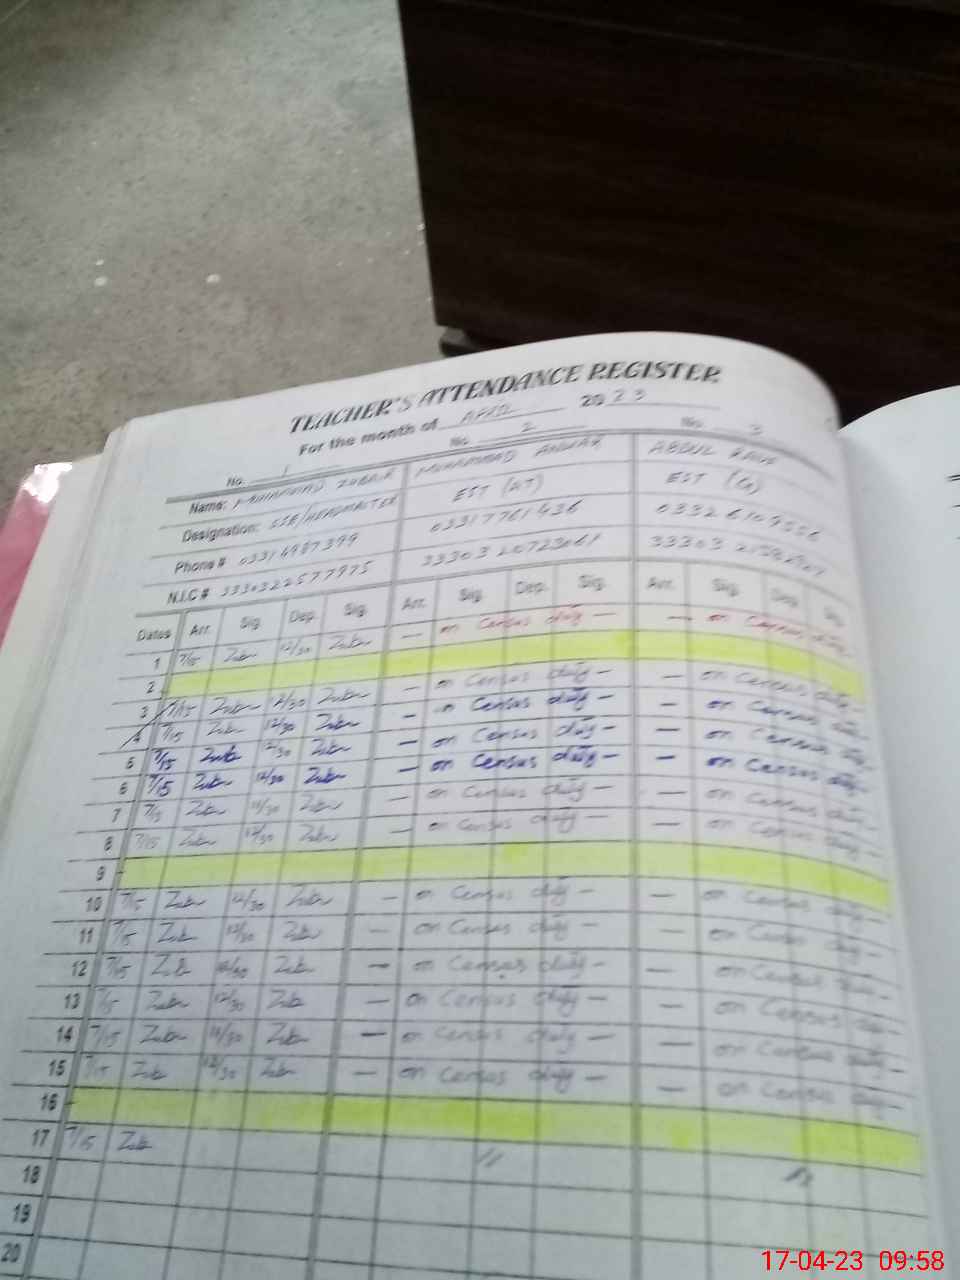 TEACHER'S ATTENDANCE REGISTER
For the month of APRIL 2023
No. 1 No. 2 No. 3
Name: MUHAMMAD ZUBAIR MUHAMMAD ANWAR ABDUL RAUF
Designation: SSE/HEADMASTER EST (AT) EST (G)
Phone # 03314987399 03317761436 03326109556
N.I.C # 3330322577975 3330320723061 33303
Dates Arr. Sig. Dep. Sig. Arr. Sig. Dep. Sig. Arr. Sig. Dep. Sig.
1 7/15 Zubr 12/30 Zubr — on Census duty — — on Census duty
2
3 7/15 Zubr 12/30 Zubr — on Census duty — — on Census duty —
4 7/15 Zubr 12/30 Zubr — on Census duty — — on Census duty —
5 7/15 Zubr 12/30 Zubr — on Census duty — — on Census duty —
6 7/15 Zubr 12/30 Zubr — on Census duty — — on Census duty —
7 7/15 Zubr Zubr — on Census duty — — on Census duty —
8 7/15 Zubr 12/30 Zubr — on Census duty — — on Census duty —
9
10 7/15 Zubr 12/30 Zubr — on Census duty — — on Census duty —
11 7/15 Zubr 12/30 Zubr — on Census duty — — on Census duty —
12 7/15 Zubr 12/30 Zubr — on Census duty — — on Census duty —
13 7/15 Zubr 12/30 Zubr — on Census duty — — on Census duty —
14 7/15 Zubr Zubr — on Census duty — — on Census duty —
15 7/15 Zubr 12/30 Zubr — on Census duty — — on Census duty —
16
17 7/15 Zubr 〃 〃
18
19
20
17-04-23 09:58